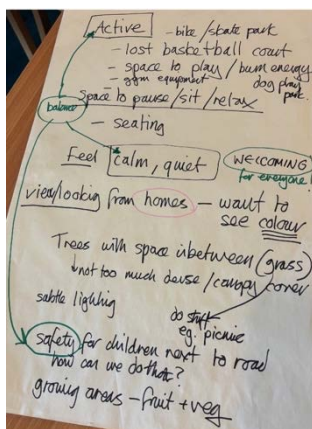 Active - bike/skate park
- lost basketball court
- space to play/burn energy
- gym equipment dog play park
balance
Space to pause/sit/relax
- seating
Feel calm, quiet
WELCOMING for everyone!
view/looking from homes - want to see colour
Trees with space inbetween (grass)
↓not too much dense/canopy cover
subtle lighting
do stuff
eg. picnic
safety for children next to road
how can we do that?
growing areas - fruit + veg